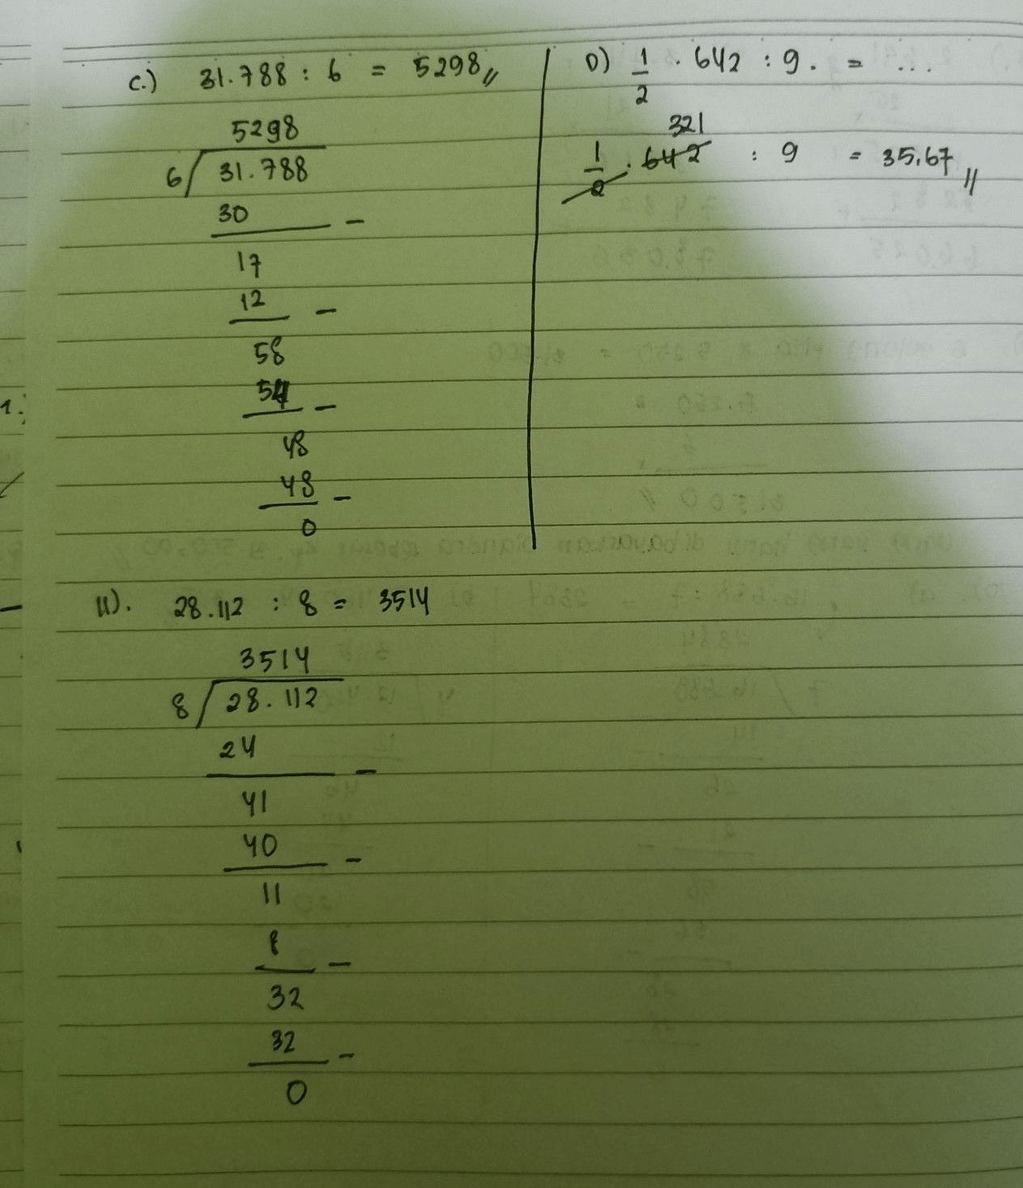 c.) 31.788 : 6 = 5298
5298
6 31.788
30 -
17
12 -
58
54 -
48
48 -
0
D) 1/2 . 642 : 9 . = ...
321
1/2 . 642 : 9 = 35,67
11). 28.112 : 8 = 3514
3514
8 28.112
24 -
41
40 -
11
8 -
32
32 -
0
1.